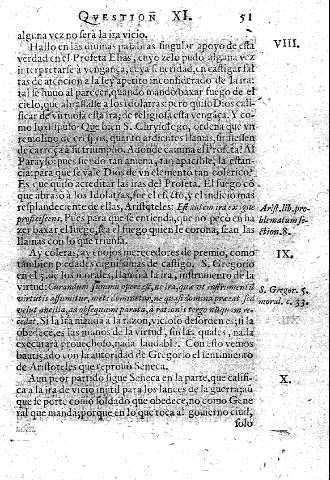 QVESTION XI. 51
alguna vez no será la ira vicio.
Hallo en las diuinas palabras singular apoyo de esta VIII.
verdad en el Profeta Elias, cuyo zelo pudo alguna vez
interpretarse a vengança, el ya se
tas de atencion a la ley apetito inconsiderado de la ira:
tal se huuo al parecer, quando mandò baxar fuego de el
cielo, que abrasasse a los idolatras: pero quiso Dios calificar
de virtuosa esta ira, de religiosa esta vengança. Y co
mo? Que bien S. Chrysologo, ordena que vn
ardientes llamas, siruiessen
su triumpho. Adonde camina el Profeta? Al
Parayso: pues siendo tan amena, tan apacible, la estancia:
para que se vale Dios de vn elemento tan colerico?
Es que quiso acreditar las iras del Profeta. El fuego co
que abrasò a los idolatras, fue el
resplandeciente de ellas, Aristoteles: Est autem ira ex igne Arist. lib. pro-
proficiscens, Pues para que se entienda, que no pecò en ha blematum se-
zer baxar el fuego, sea el fuego quien le corona, sean las ction. 8.
llamas con lo que triunfa.
Ay coleras, ay enojos merecedores de premio, como IX.
tambien piedades dignissimas de castigo. S. Gregorio
en el 5. de los morales, llamò a la ira, instrumento de la
virtud: Curandum summo opere est, ne ira, quæ vt instrumentum S. Gregor. 5.
virtutis assumitur, menti dominetur, ne quasi domina præeat, sed moral. c. 33.
velut ancilla, ad obsequium parata, à rationis tergo nunquam re-
cedat. Si la ira manda a la razon, vicio es defender es; si la
obedece, es las manos de la virtud, sin las quales, nada
executara prouechoso, nada laudable. Con esto vemos
bautiçado con la autoridad de Gregorio el sentimiento
de Aristoteles que reprouò Seneca.
Aun peor partido sigue Seneca en la parte, que califi X.
ca a la ira de vicio inutil para los lances de la guerra: aũ
que se porte como soldado que obedece, no como Gene
ral que manda: porque en lo que toca al gouierno ciuil,
solo